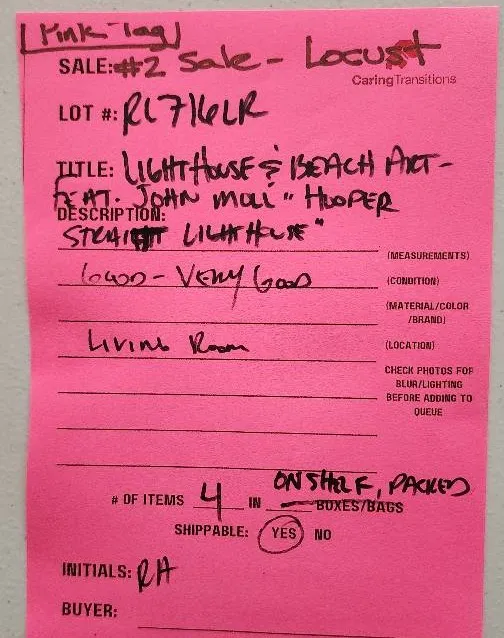 Pink Tag
SALE: #2 Sale - Locust
CaringTransitions
LOT #: RL716LR
TITLE: LIGHTHOUSE & BEACH ART-
FEAT. JOHN MOLL "HOOPER
DESCRIPTION:
STRAIGHT LIGHTHOUSE"
(MEASUREMENTS)
GOOD - VERY GOOD (CONDITION)
(MATERIAL/COLOR
/BRAND)
LIVING ROOM (LOCATION)
CHECK PHOTOS FOR
BLUR/LIGHTING
BEFORE ADDING TO
QUEUE
ON SHELF, PACKED
# OF ITEMS 4 IN BOXES/BAGS
SHIPPABLE: YES NO
INITIALS: RH
BUYER: